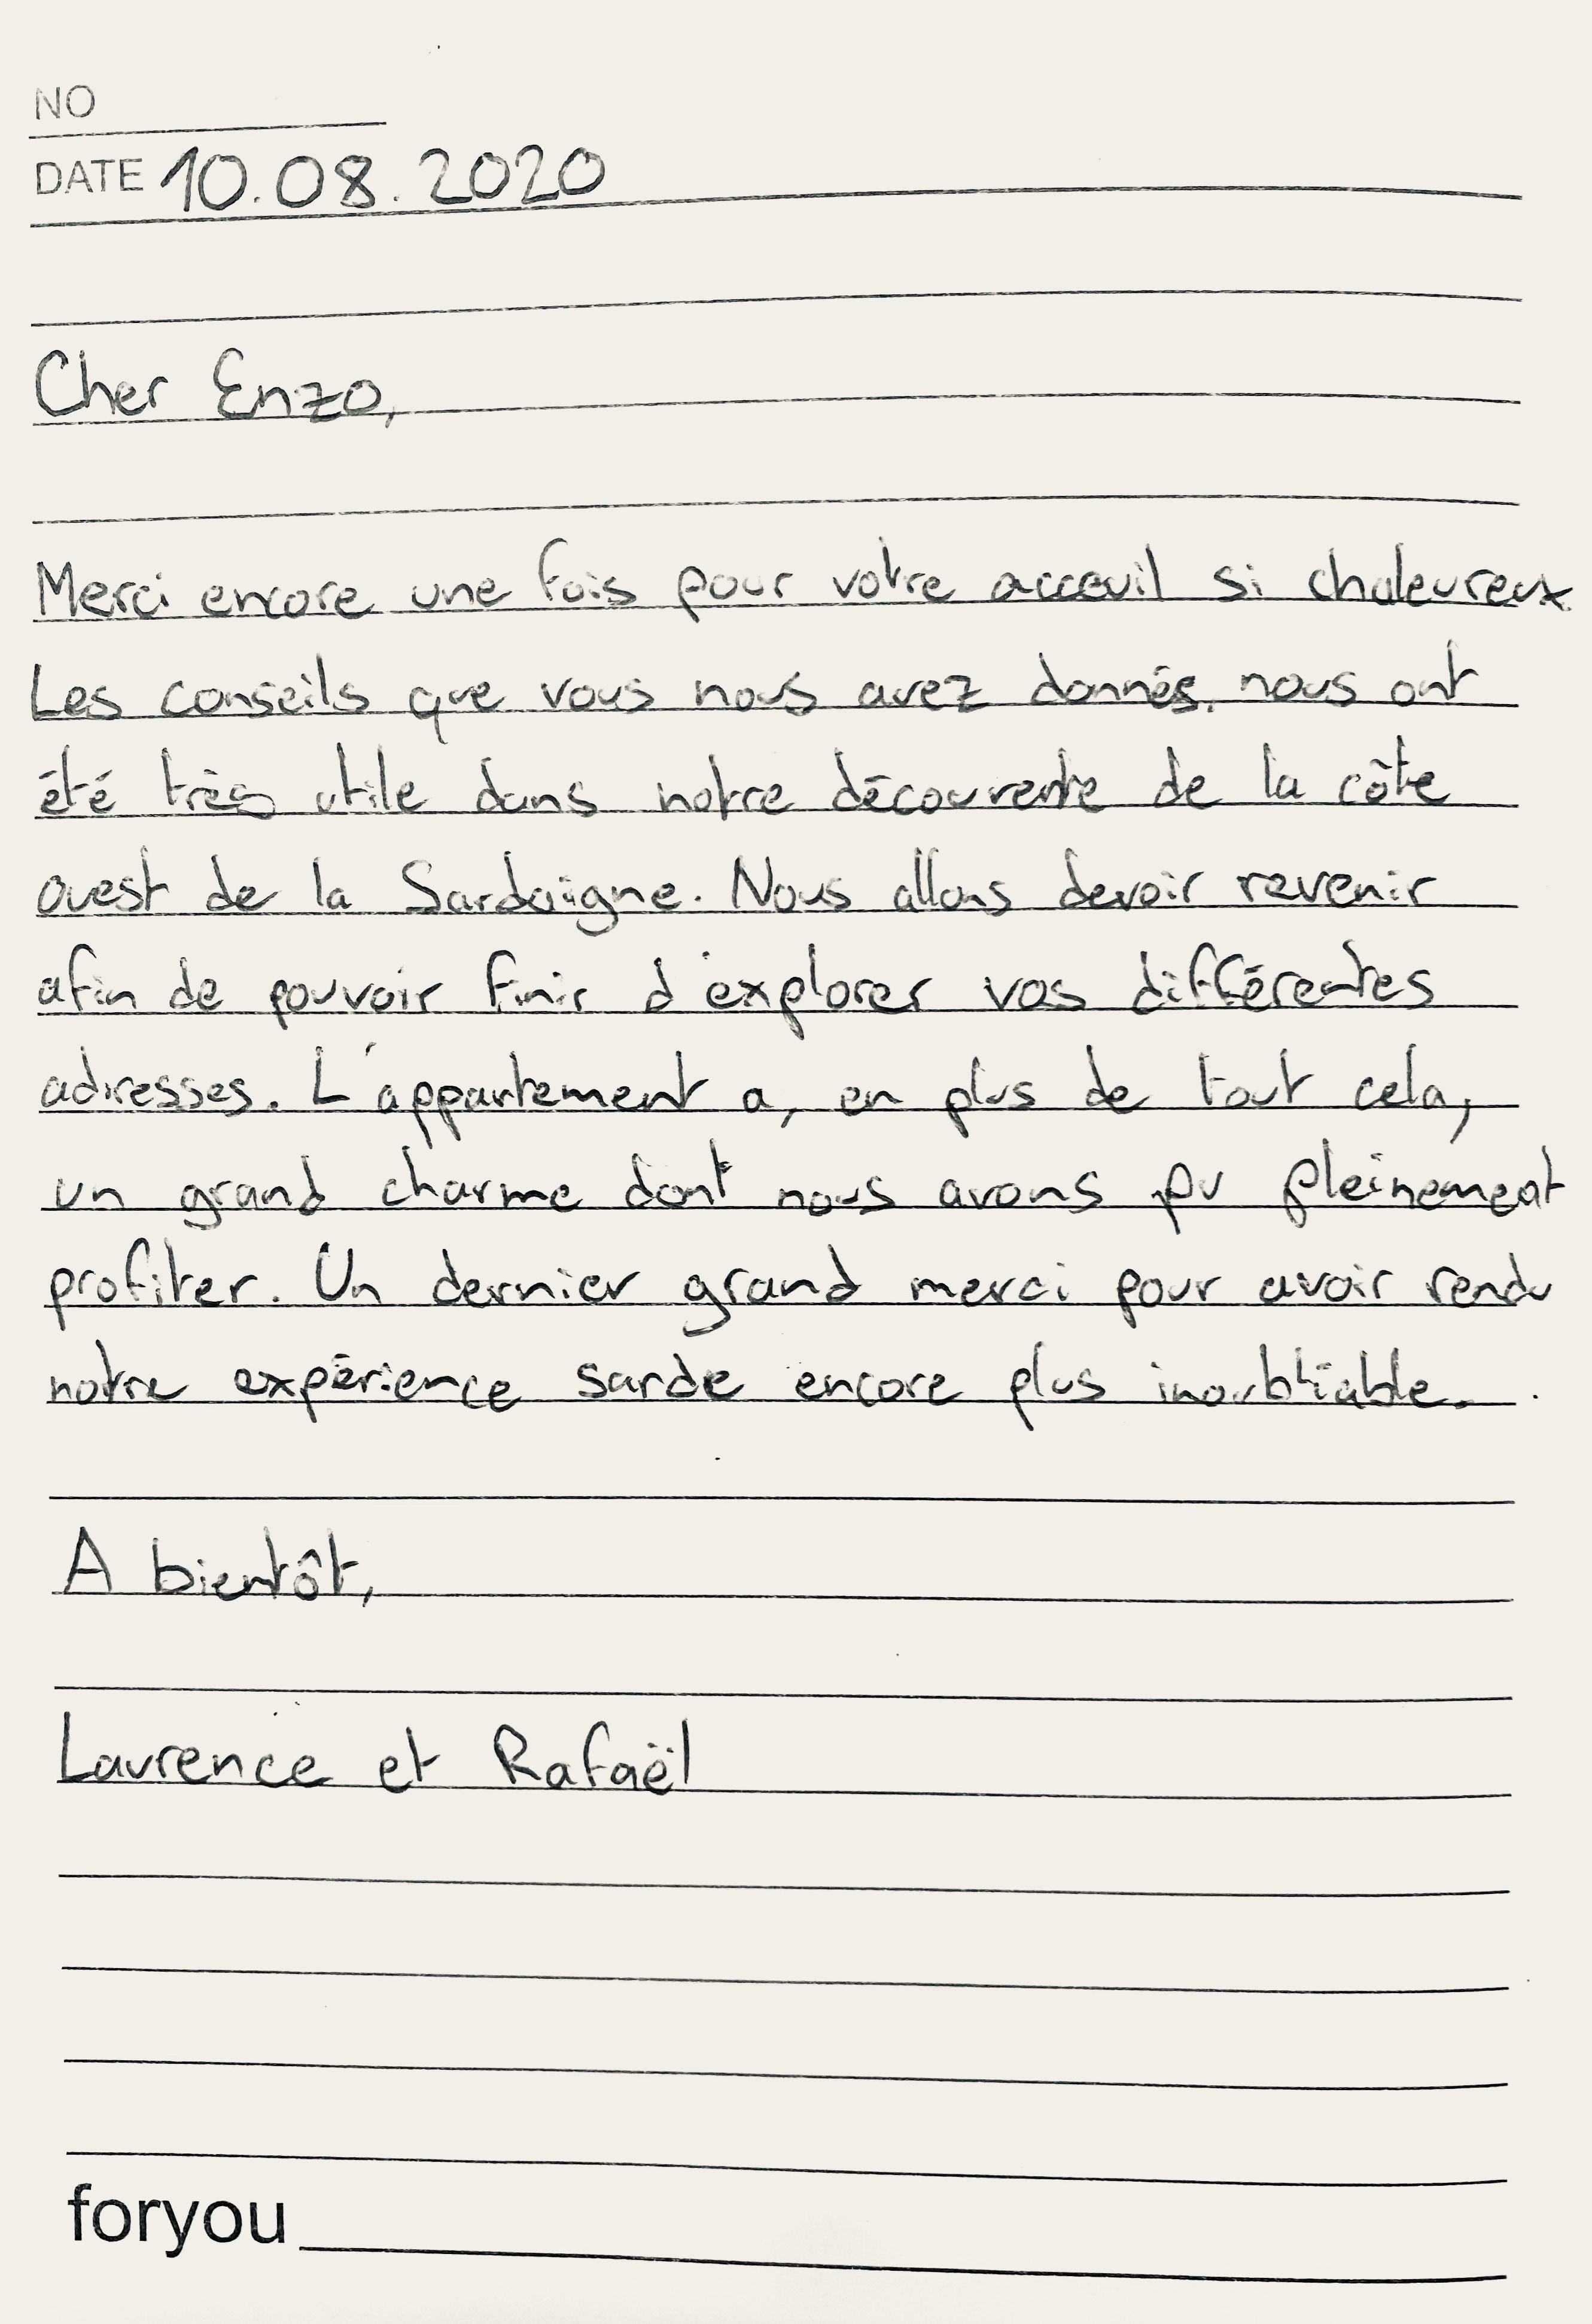 NO
DATE 10.08.2020
Cher Enzo,
Merci encore une fois pour votre acceuil si chaleureux.
Les conseils que vous nous avez donnés, nous ont
été très utile dans notre découverte de la côte
ouest de la Sardaigne. Nous allons devoir revenir
afin de pouvoir finir d'explorer vos différentes
adresses. L'appartement a, en plus de tout cela,
un grand charme dont nous avons pu pleinement
profiter. Un dernier grand merci pour avoir rendu
notre expérience sarde encore plus inoubliable.
A bientôt,
Laurence et Rafaël
foryou